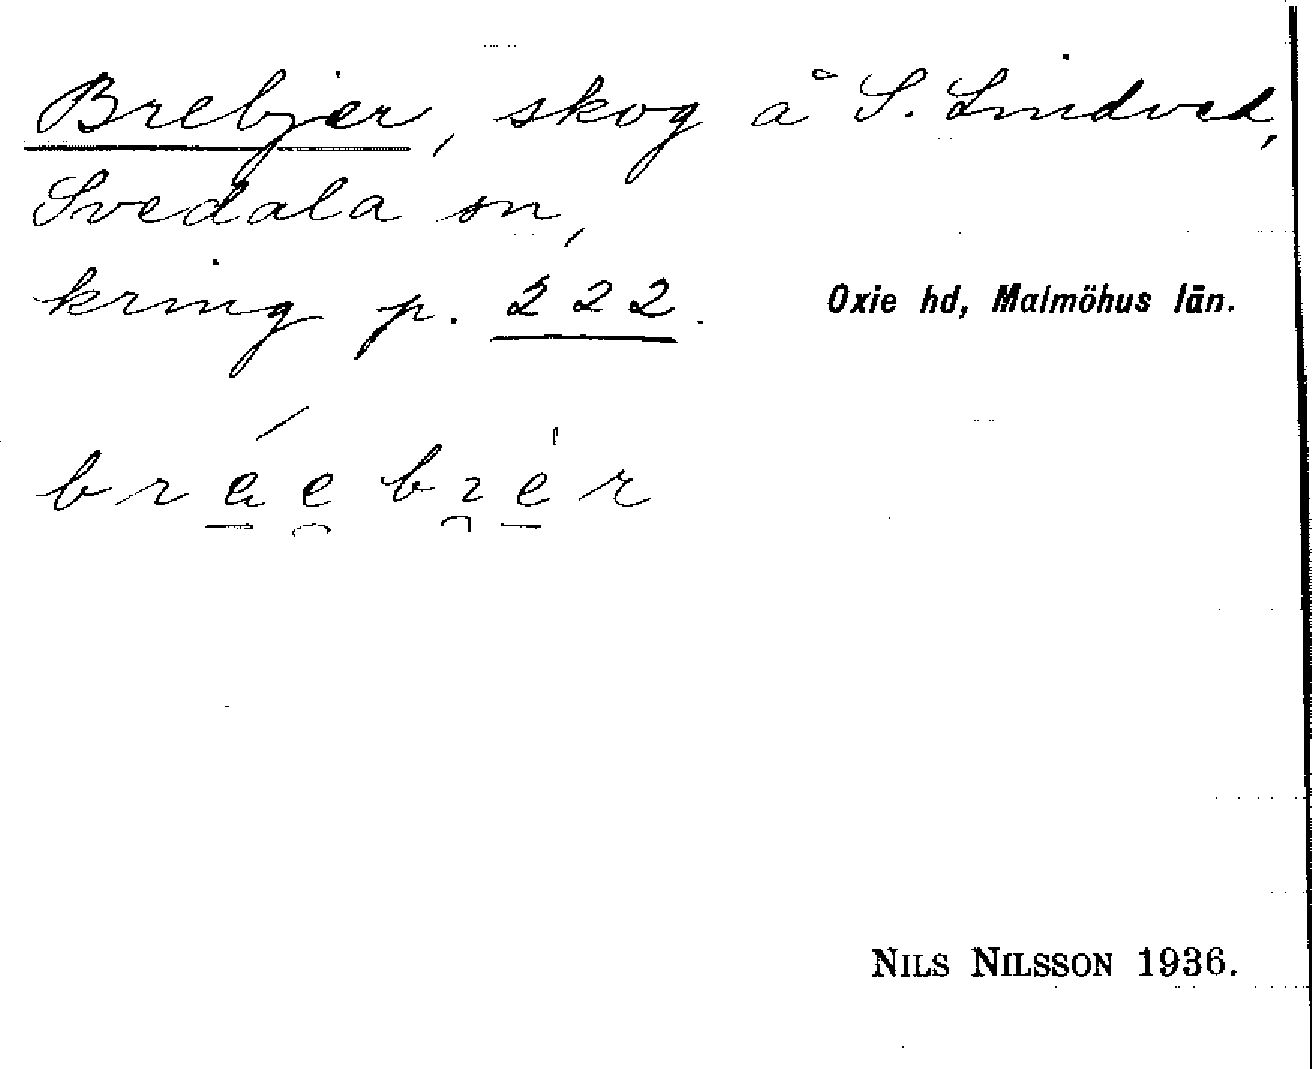 Brebjer, skog å S. Lindved,
Svedala sn,
kring p. 222.
Oxie hd, Malmöhus län.
NILS NILSSON 1936.